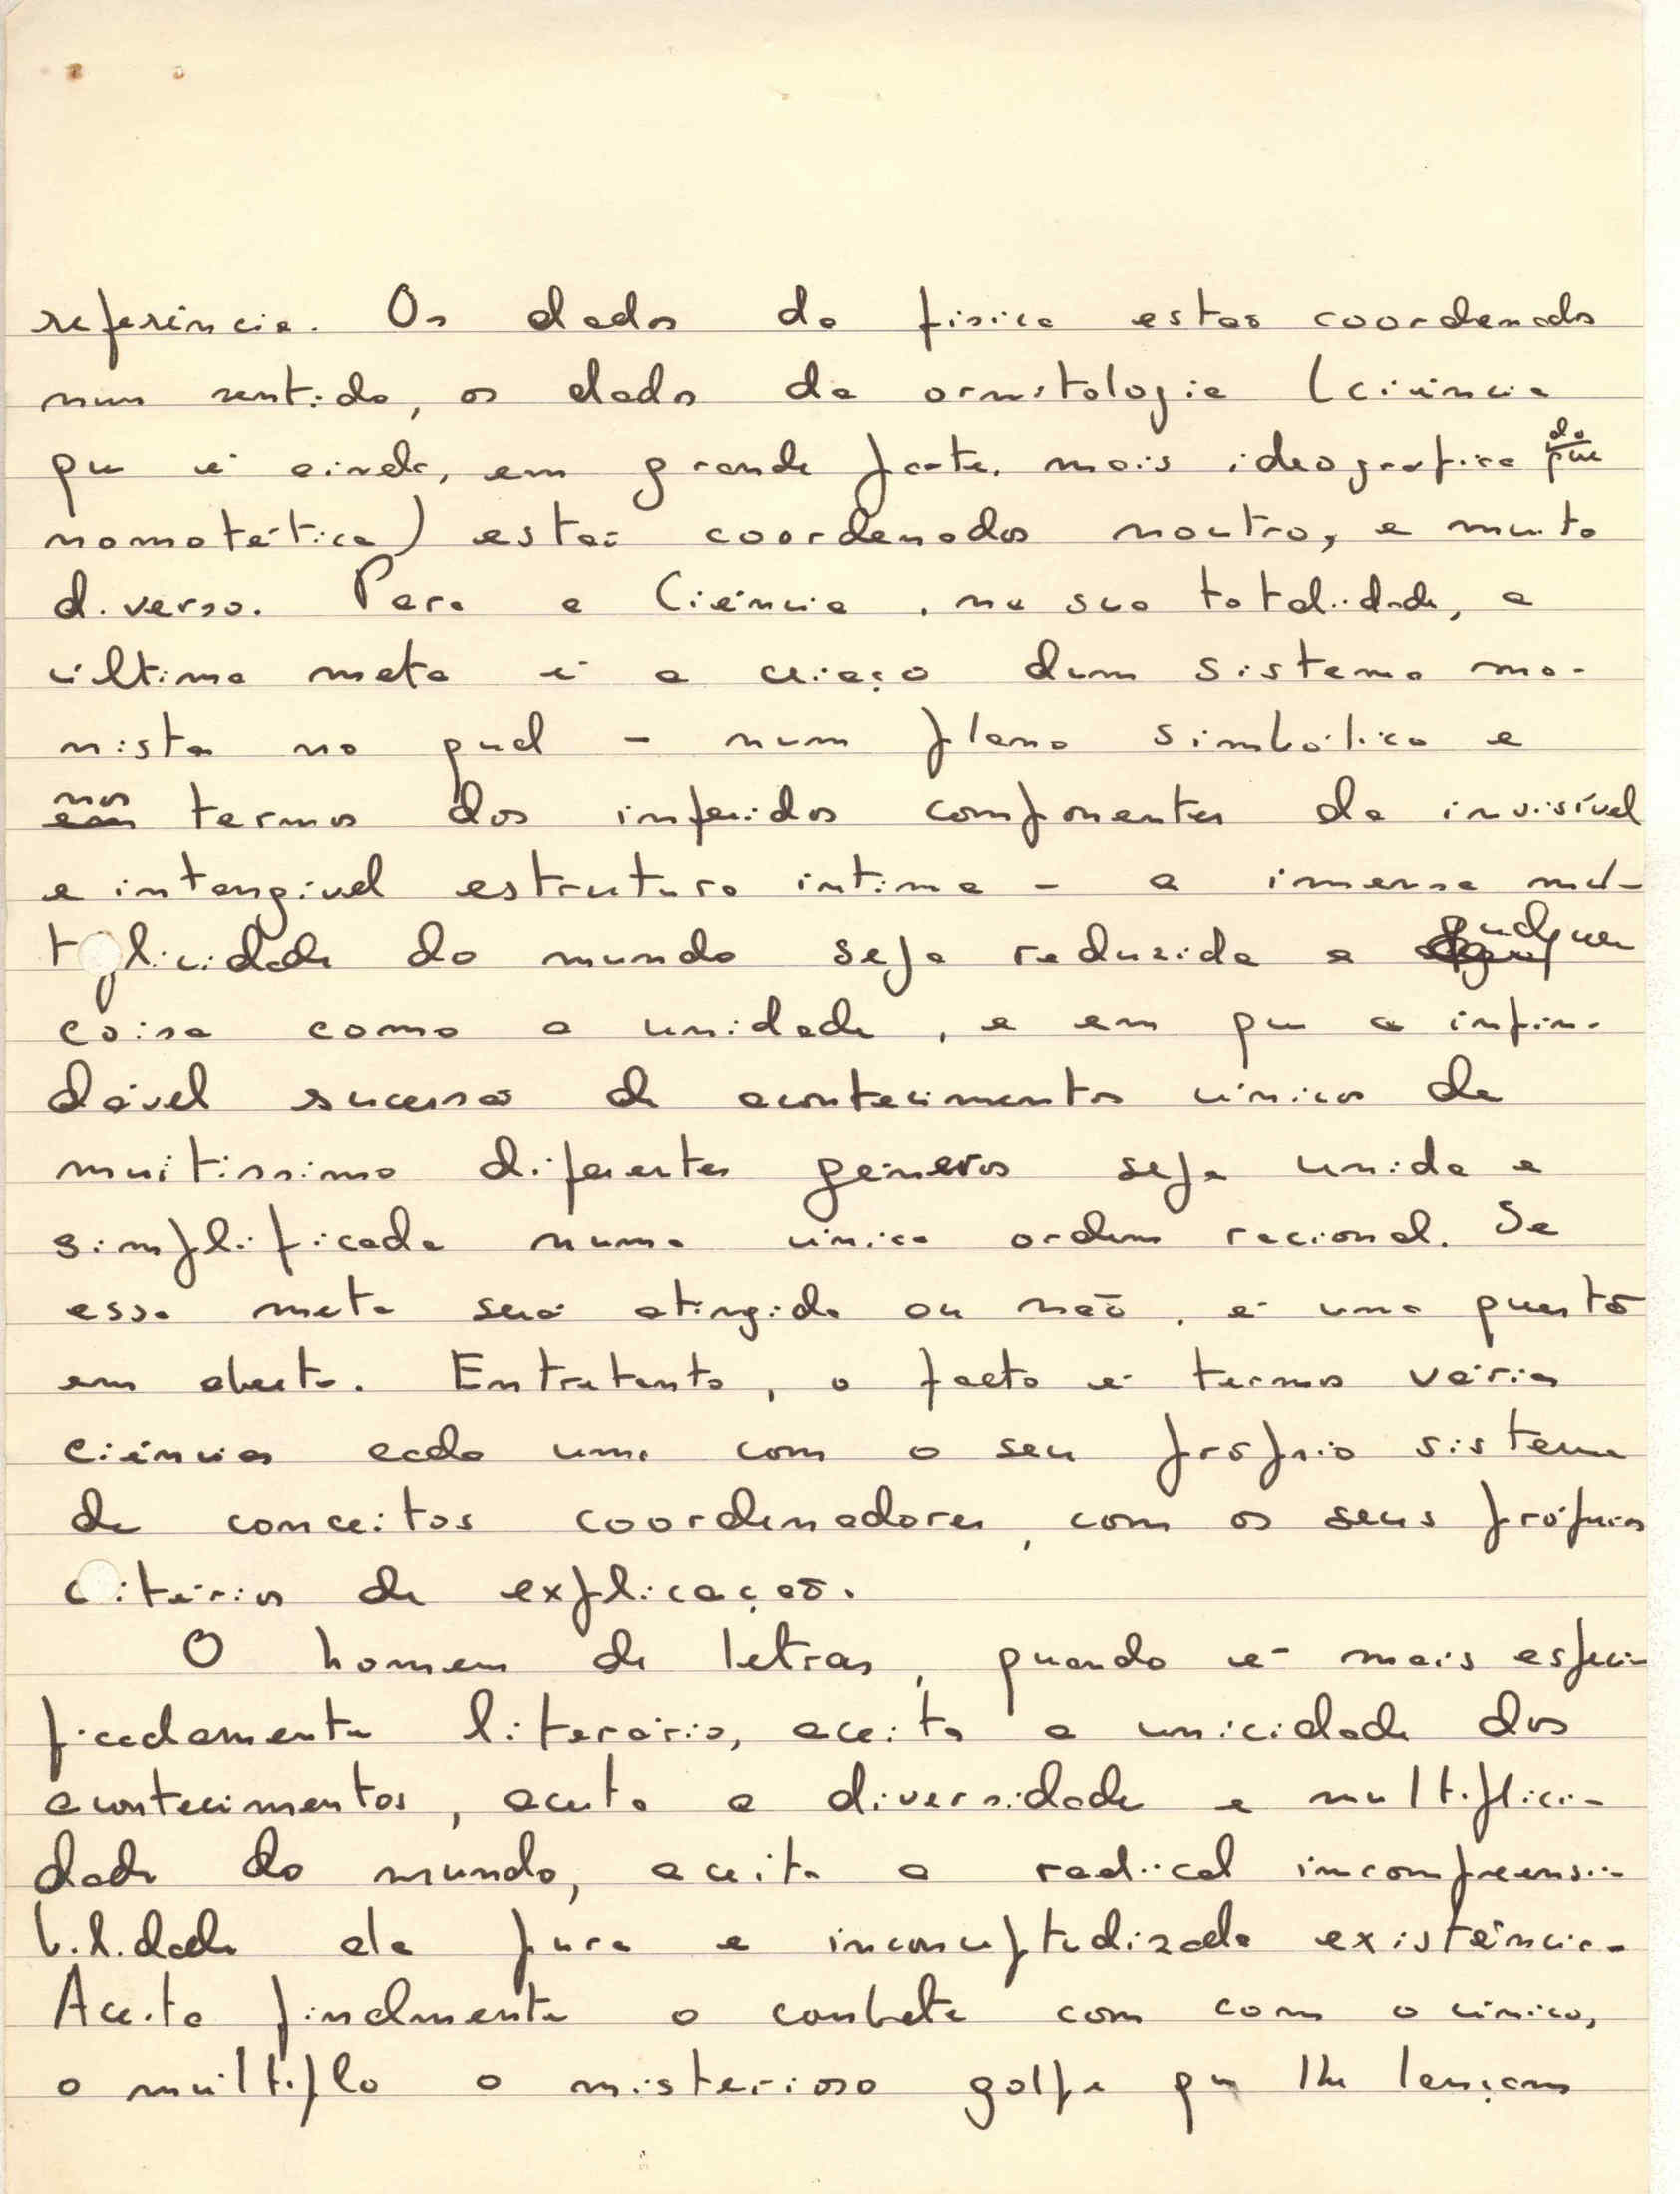 referência. Os dados da física estão coordenados
num sentido, os dados da ornitologia (ciência
que é ainda, em grande parte, mais ideografica do que
nomotética) estão coordenados noutro, e muito
diverso. Para a Ciência, na sua totalidade, a
última meta é a criação dum sistema mo-
nista no qual – num plano simbólico e
nos em termos dos inferidos componentes da invisível
e intangível estrutura intima – a imensa mul-
tiplicidade do mundo seja reduzida a qualquer
coisa como a unidade, e em que a infin-
dável sucessão de acontecimentos únicos de
muitissimo diferentes géneros seja unida e
simplificada numa única ordem racional. Se
essa meta será atingida ou não, é uma questão
em aberto. Entretanto, o facto é termos várias
ciências cada uma com o seu próprio sistema
de conceitos coordenadores, com os seus próprios
critérios de explicação.
O homem de letras, quando é mais especi-
ficadamente literário, aceita a unicidade dos
acontecimentos, aceita a diversidade e multiplici-
dade do mundo, aceita a radical incompreensi-
bilidade da pura e inconceptualizada existência.
Aceita finalmente o combate com com o único,
o múltiplo o misterioso golpe que lhe lançam